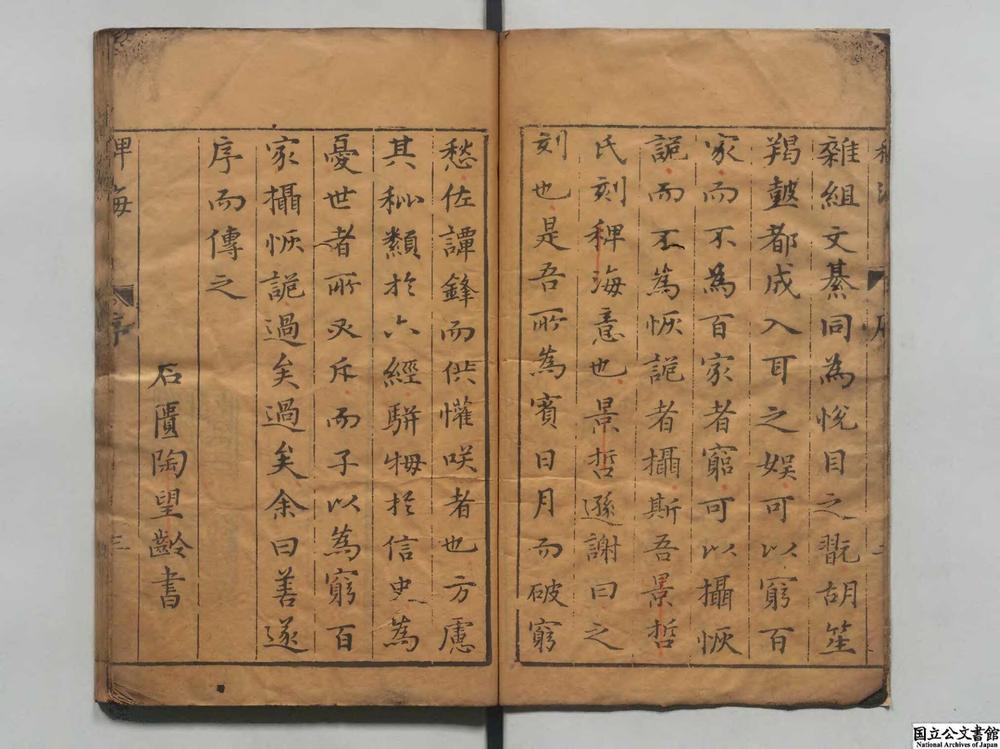 雜組文綦同為悅目之翫胡笙
羯鼓都成入耳之娛可以窮百
家而不為百家者窮可以攝恢
詭而不為恢詭者攝斯吾景哲
氏刻稗海意也景哲遜謝曰之
刻也是吾所為賓日月而破窮
愁佐譚鋒而供懽咲者也方慮
其秕纇於六經駢拇於信史為
憂世者所灾斥而子以為窮百
家攝恢詭過矣過矣余曰善遂
序而傳之
石簣陶望齡書
稗海
序
三
国立公文書館
National Archives of Japan